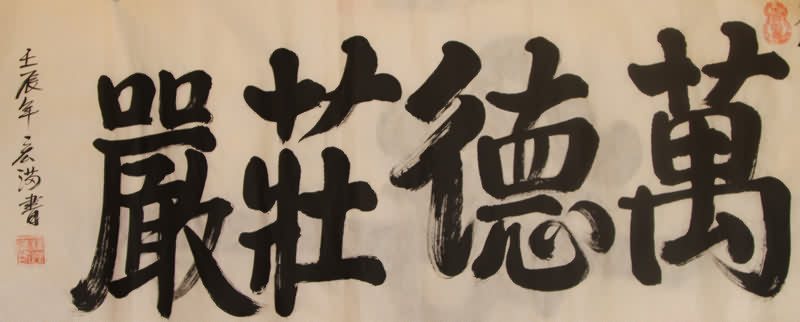 萬德莊嚴
壬辰年 云满書